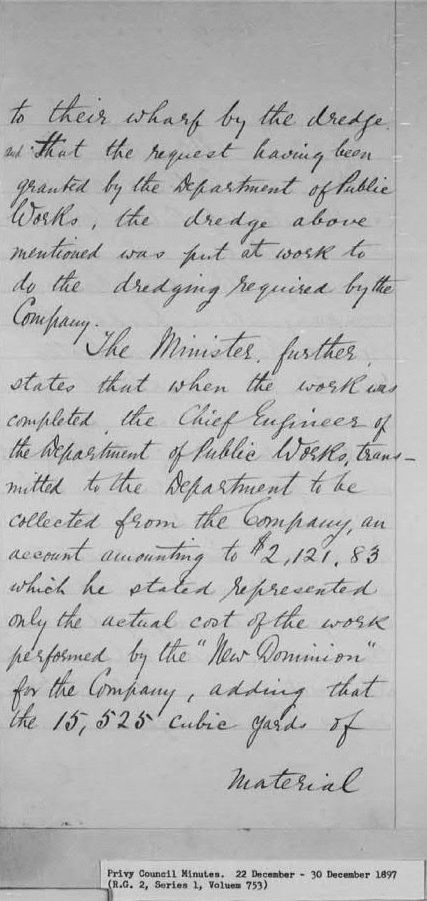 to their wharf by the dredge.
and That the request having been
granted by the Department of Public
Works, the dredge above
mentioned was put at work to
do the dredging required by the
Company.
The Minister, further,
states that when the work was
completed, the Chief Engineer of
the Department of Public Works, trans-
mitted to the Department to be
collected from the Company, an
account amounting to $2,121.83
which he stated represented
only the actual cost of the work
performed by the "New Dominion"
for the Company, adding that
the 15,525 cubic yards of
Material
Privy Council Minutes. 22 December - 30 December 1897
(R.G. 2, Series 1, Voluem 753)